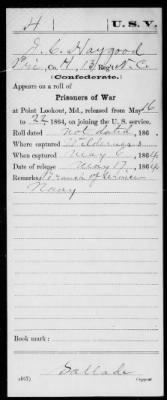 H U.S.V.
J. C. Haygood
Pvt., Co. H, 13 Reg't N. C.
(Confederate.)
Appears on a roll of
Prisoners of War
at Point Lookout, Md., released from May 16
to 22 1864, on joining the U. S. service.
Roll dated Not dated, 186
Where captured Wilderness
When captured May 6, 1864
Date of release May 17, 1864
Remarks: Branch of Service
Navy
Book mark:
Sallade
Copyist.